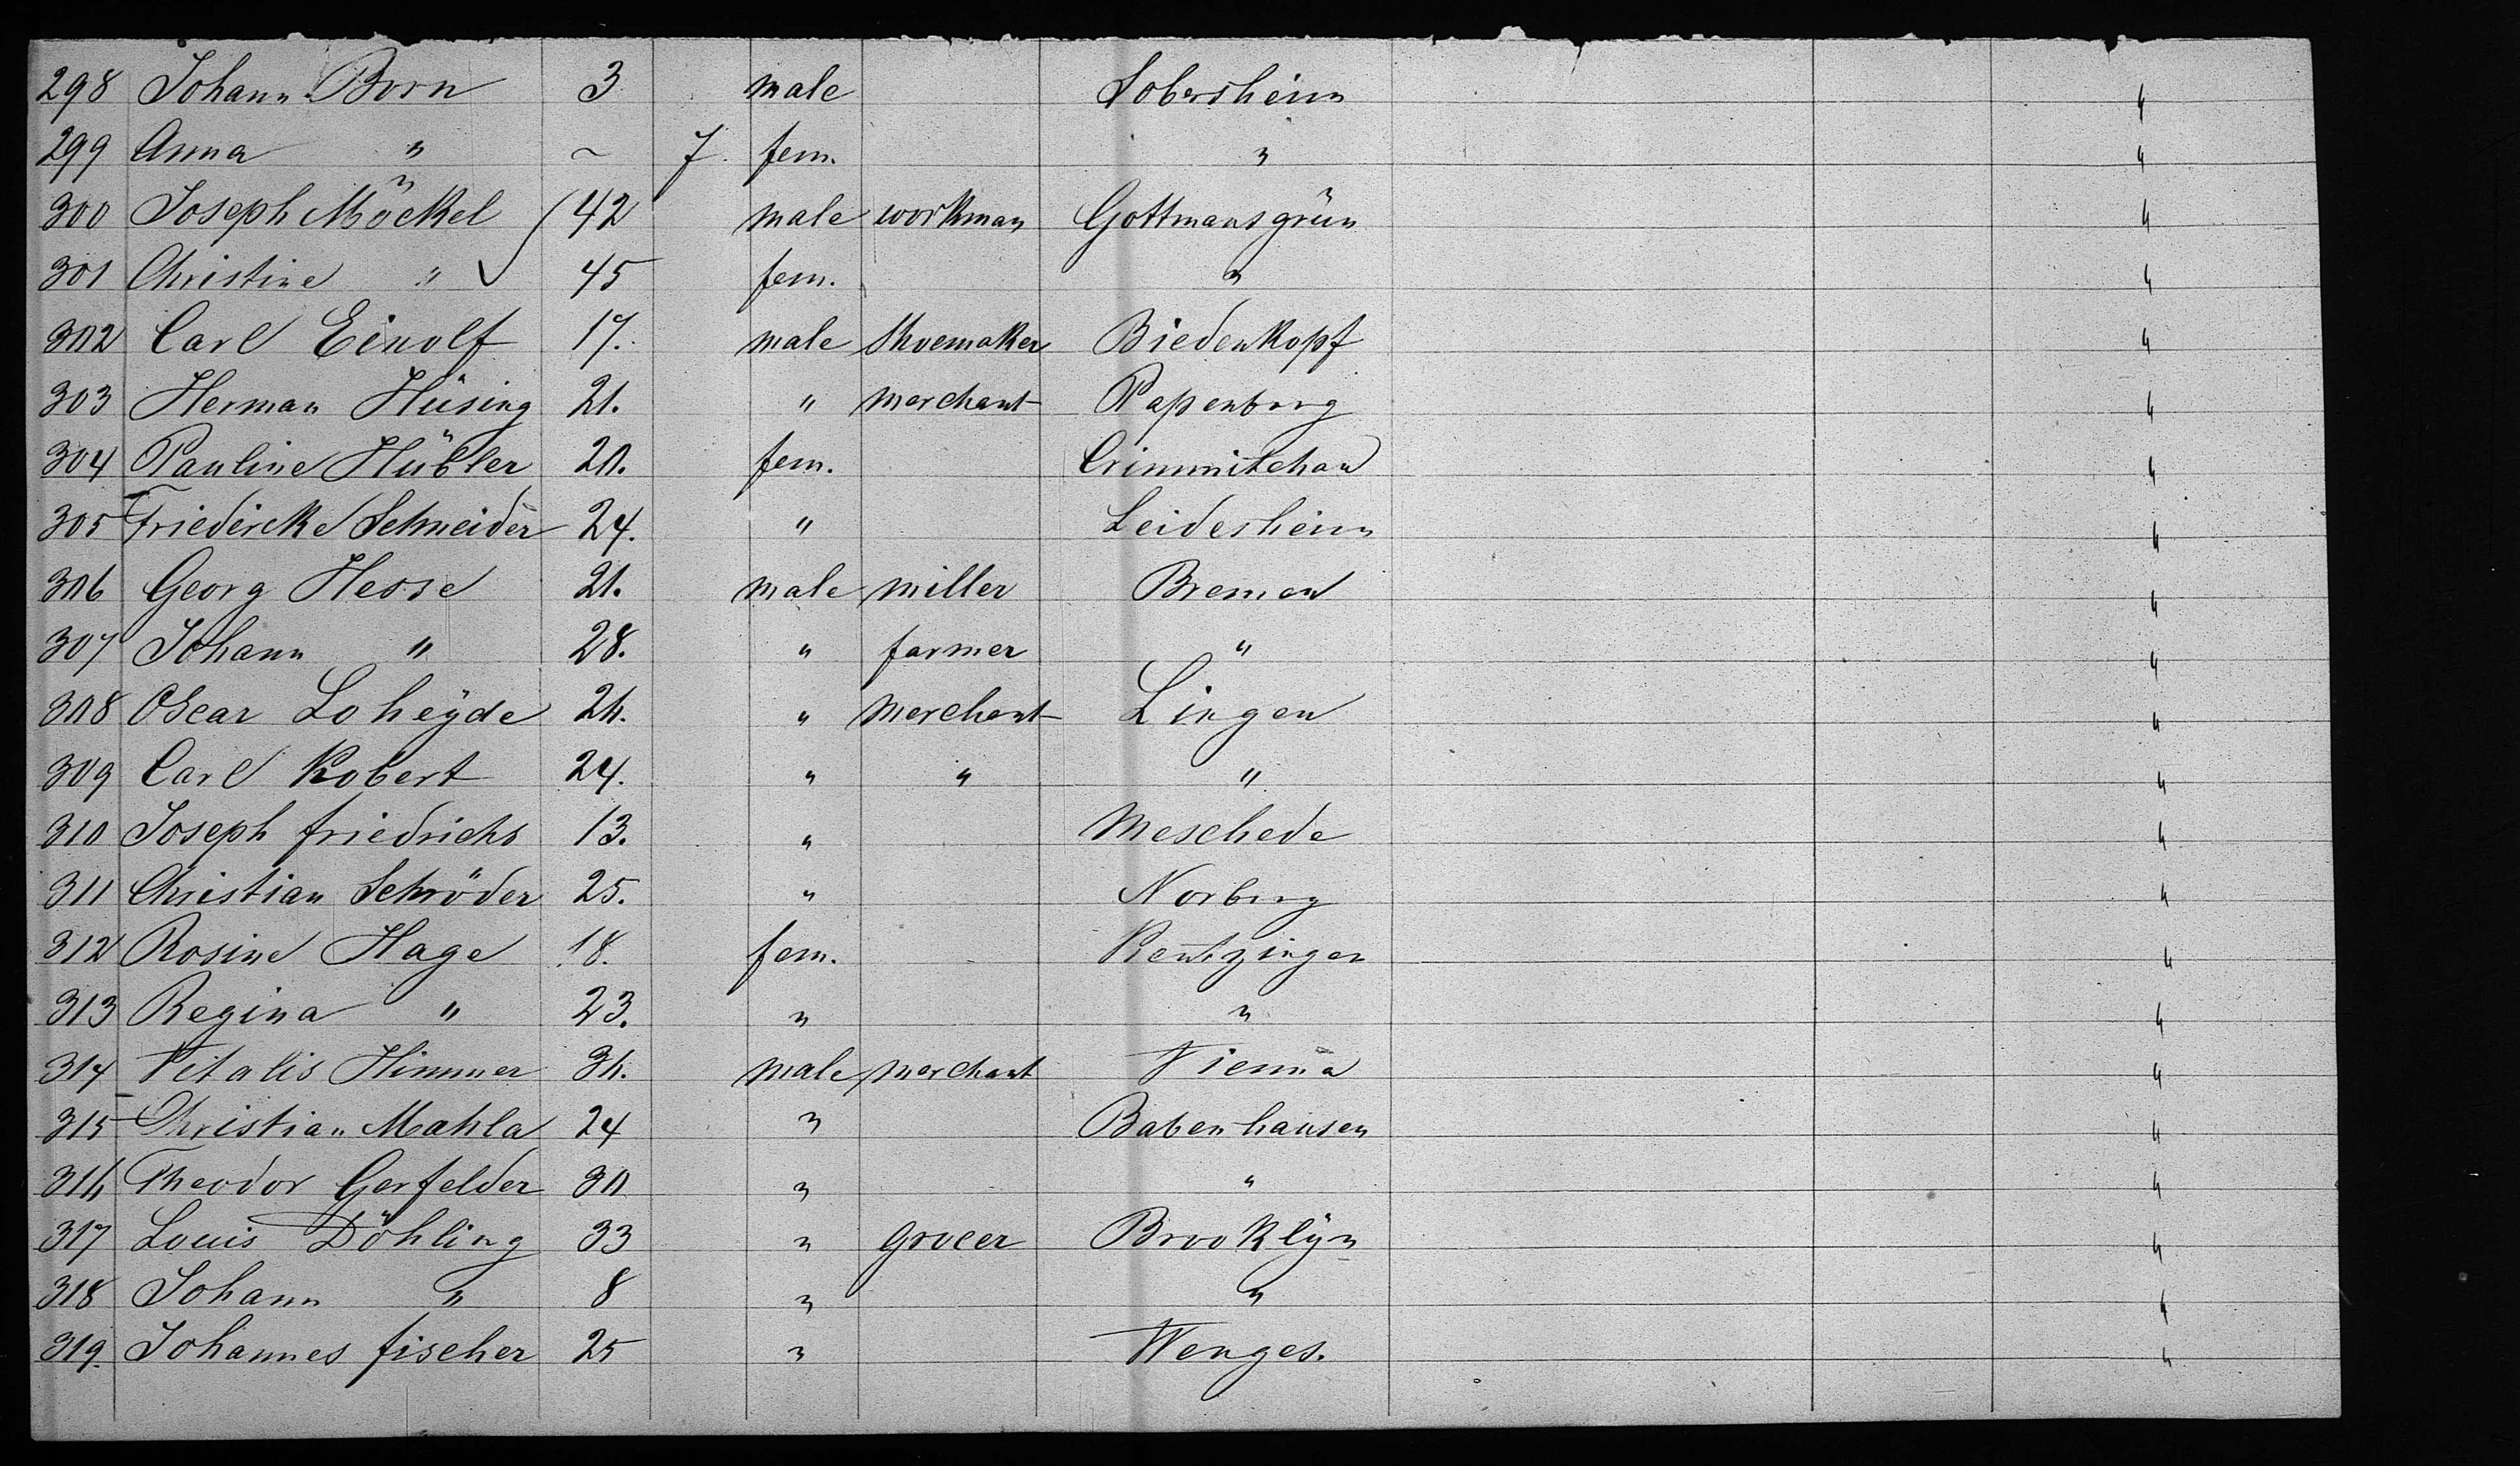 298 Johann Born 3 male Sobersheim "
299 Anna " ~ 7. fem. " "
300 Joseph Möckel 42 male workman Gottmansgrün "
301 Christine " 45 fem. " "
302 Carl Einolf 17. male Shoemaker Biedenkopf "
303 Herman Hüsing 21. " merchant Papenburg "
304 Pauline Hübler 20. fem. Crimmitchau "
305 Friedericke Schneider 24. " Leidesheim "
306 Georg Hesse 21. male miller Bremen "
307 Johann " 28. " farmer " "
308 Oscar Loheyde 26. " merchant Lingen "
309 Carl Robert 24. " " " "
310 Joseph friedrichs 13. " Meschede "
311 Christian Schröder 25. " Norburg "
312 Rosine Hage 18. fem. "
313 Regina " 23. " " "
314 Vitalis Himmer 36. male merchant Vienna "
315 Christian Mahla 24 " Babenhausen "
316 Theodor Gerfelder 30 " " "
317 Louis Döhling 33 " grocer Brooklyn "
318 Johann " 8 " " "
319. Johannes fischer 25 " Wenges. "